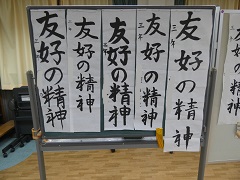 友好の精神
三年
友好の精神
三年
友好の精神
友好の精神
友好の精神